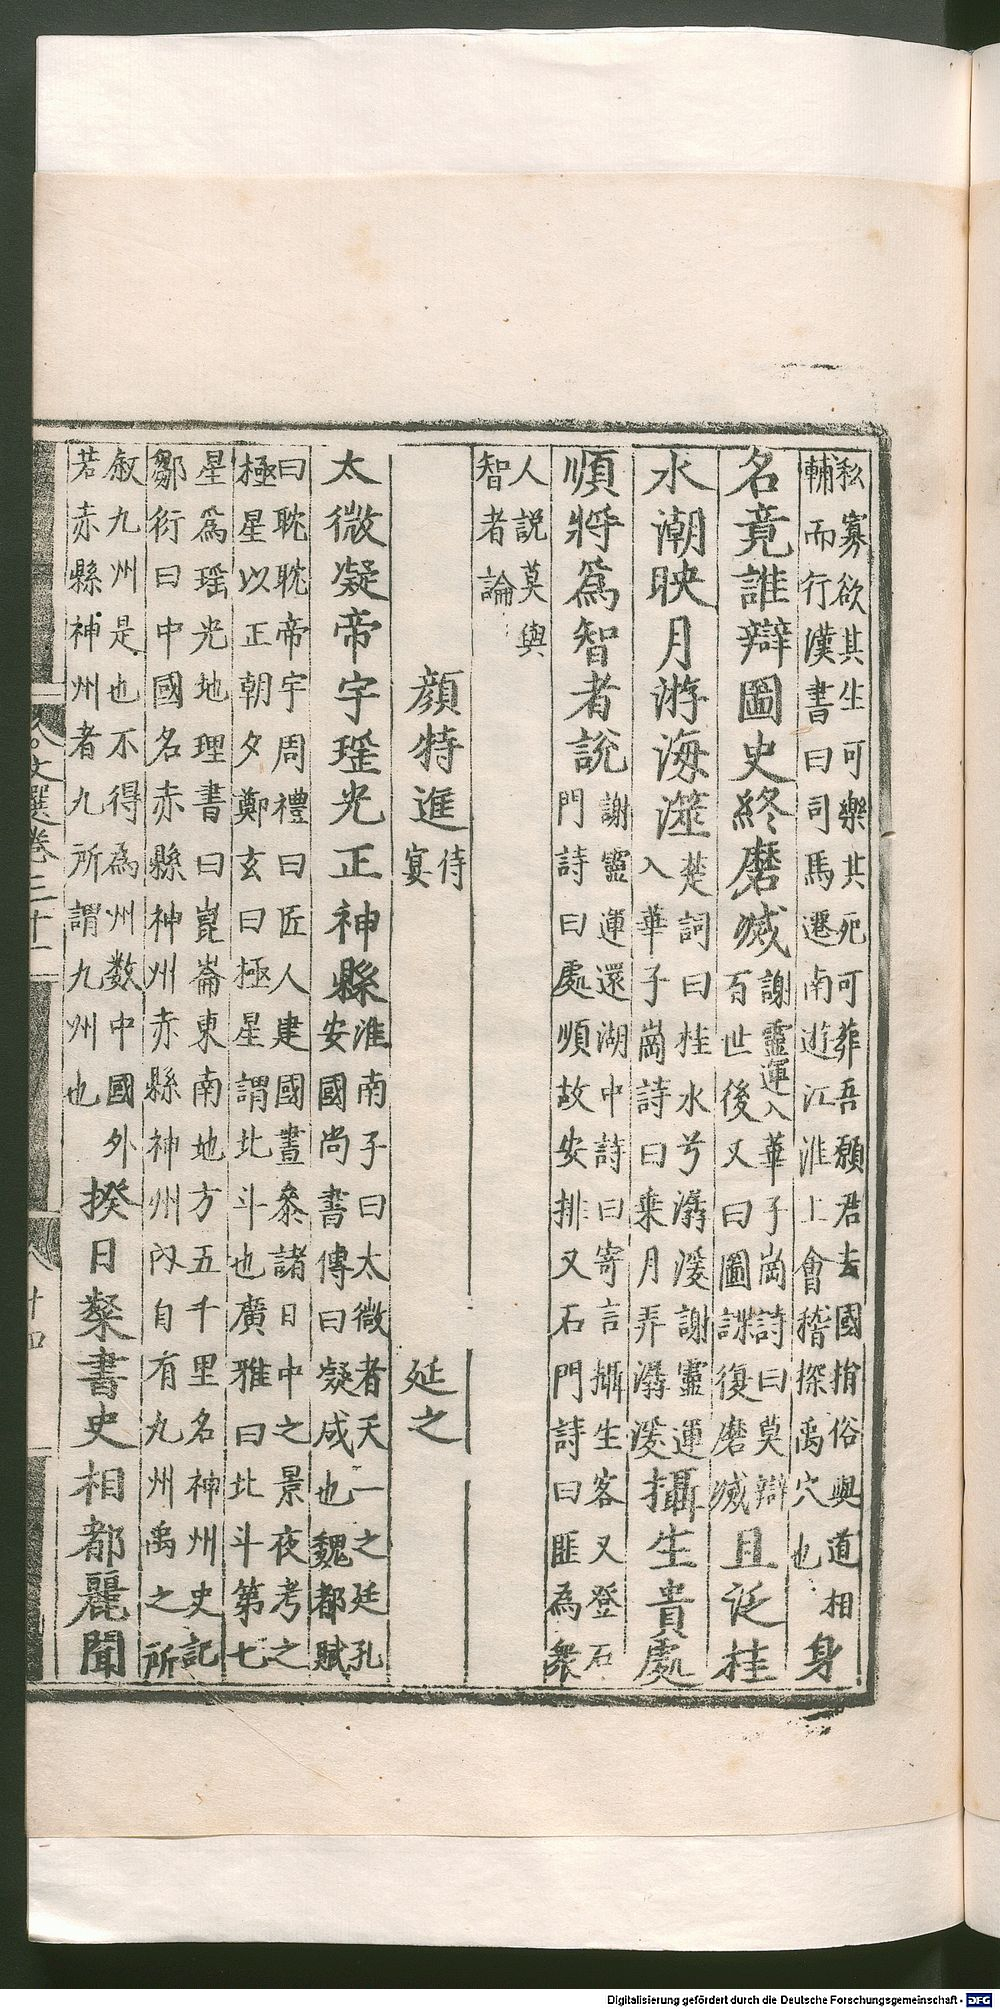 私寡欲其生可樂其死可葬吾願君去國捐俗與道相
輔而行漢書曰司馬遷南遊江淮上會稽探禹穴也 身
名竟誰辯圖史終磨滅 謝靈運入華子崗詩曰莫辯
百世後又曰圖諜復磨滅 且泛桂
水潮映月游海澨 楚詞曰桂水兮潺湲謝靈運
入華子崗詩曰乘月弄潺湲 攝生貴處
順將爲智者說 謝靈運還湖中詩曰寄言攝生客又登石
門詩曰處順故安排又石門詩曰匪為衆
人說莫與
智者論
顔特進 侍宴 延之
太微凝帝宇瑶光正神縣 淮南子曰太微者天一之廷孔
安國尚書傳曰凝成也魏都賦
曰耽耽帝宇周禮曰匠人建國晝叅諸日中之景夜考之
極星以正朝夕鄭玄曰極星謂北斗也廣雅曰北斗第七
星爲瑶光地理書曰崑崙東南地方五千里名神州史記
鄒衍曰中國名赤縣神州赤縣神州內自有九州禹之所
敘九州是也不得為州数中國外
若赤縣神州者九所謂九州也 揆日粲書史相都麗聞
文選卷三十一
十四
Digitalisierung gefördert durch die Deutsche Forschungsgemeinschaft - DFG